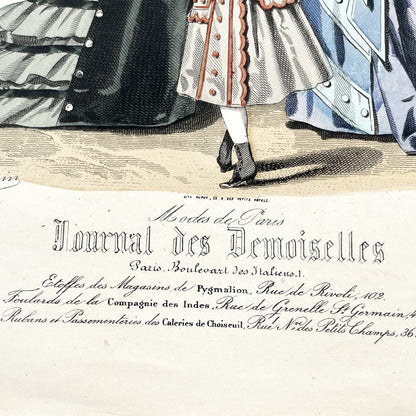 Modes de Paris
Journal des Demoiselles
Paris. Boulevart des Italiens. 1.
Etoffes des Magasins de Pygmalion, Rue de Rivoli, 102.
Foulards de la Compagnie des Indes, Rue de Grenelle St Germain, 4
Rubans et Passementeries des Caleries de Choiseuil, Rue Nve des Petits Champs, 36.